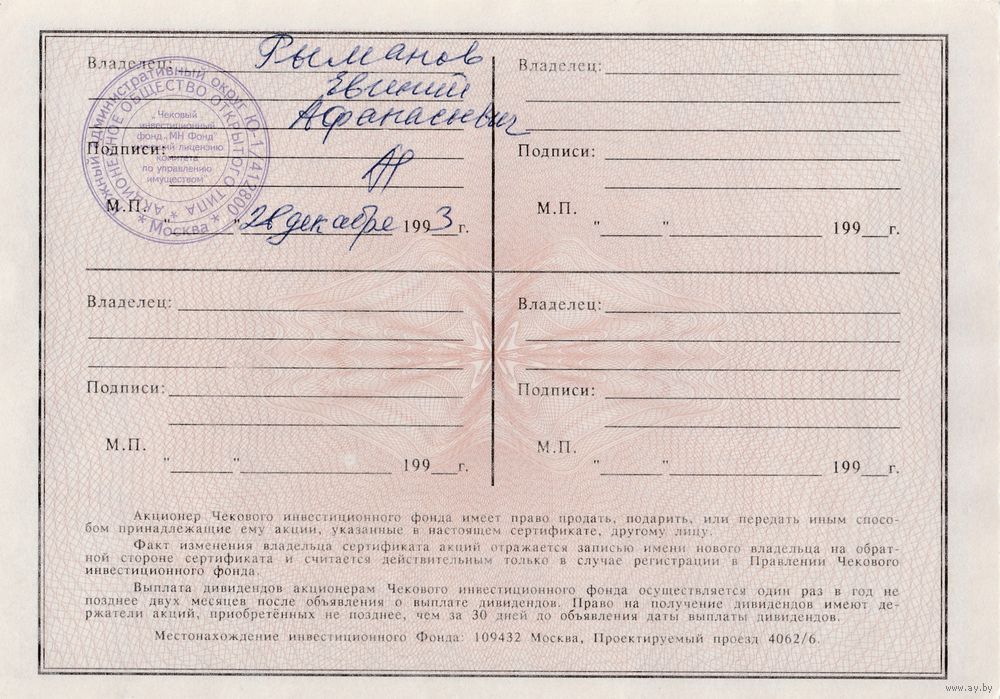 Владелец: Рыманов
Евгений
Афанасьевич
Подписи:
М.П.
"28" декабря 1993 г.
Южный административный округ Ю-1/412800
* Москва *
АКЦИОНЕРНОЕ ОБЩЕСТВО ОТКРЫТОГО ТИПА *
Чековый
инвестиционный
фонд "МН Фонд"
лицензию
комитета
по управлению
имуществом
Владелец:
Подписи:
М.П.
"___"___ 199__г.
Владелец:
Подписи:
М.П.
"___"___ 199__г.
Владелец:
Подписи:
М.П.
"___"___ 199__г.
Акционер Чекового инвестиционного фонда имеет право продать, подарить, или передать иным спосо-
бом принадлежащие ему акции, указанные в настоящем сертификате, другому лицу.
Факт изменения владельца сертификата акций отражается записью имени нового владельца на обрат-
ной стороне сертификата и считается действительным только в случае регистрации в Правлении Чекового
инвестиционного фонда.
Выплата дивидендов акционерам Чекового инвестиционного фонда осуществляется один раз в год не
позднее двух месяцев после объявления о выплате дивидендов. Право на получение дивидендов имеют де-
ржатели акций, приобретённых не позднее, чем за 30 дней до объявления даты выплаты дивидендов.
Местонахождение инвестиционного Фонда: 109432 Москва, Проектируемый проезд 4062/6.
www.ay.by